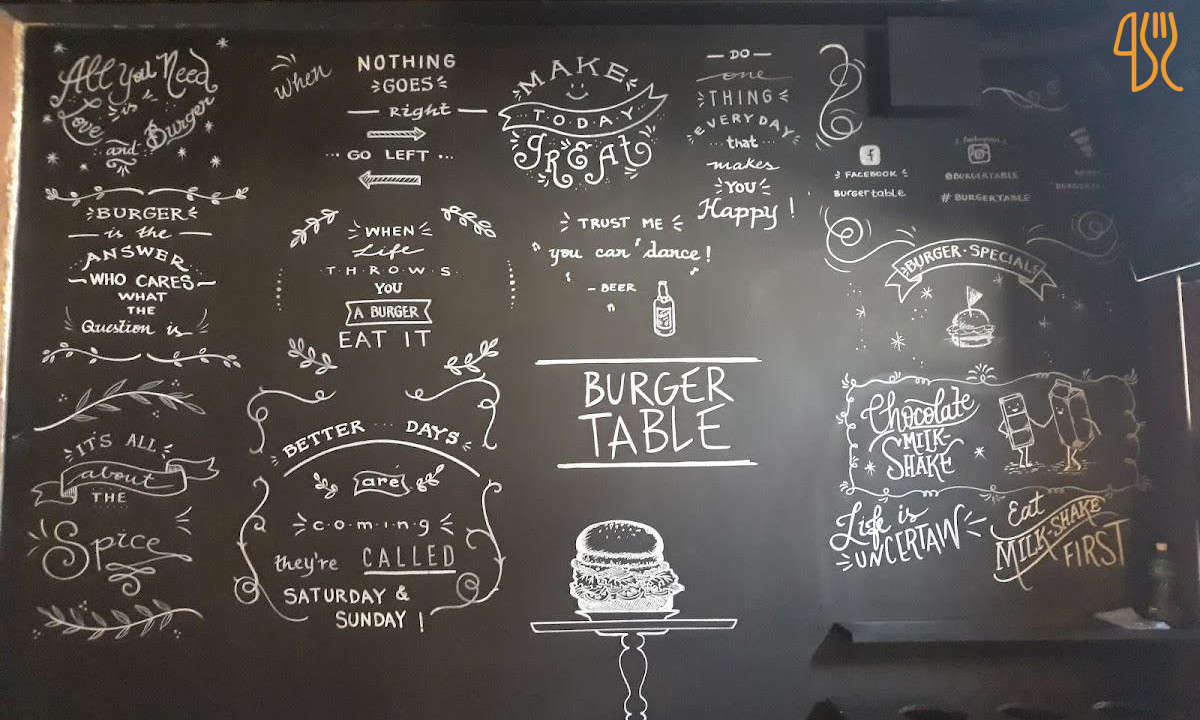 All You Need
is
Love
and Burger
BURGER
is the
ANSWER
WHO CARES
WHAT
THE
Question is
IT'S ALL
about
THE
Spice
When
NOTHING
GOES
Right
GO LEFT
WHEN
Life
THROWS
YOU
A BURGER
EAT IT
BETTER DAYS
are
coming
they're CALLED
SATURDAY &
SUNDAY !
MAKE
TODAY
GREAt
TRUST ME
you can dance!
- BEER
BURGER
TABLE
DO
one
THING
EVERYDAY
that
makes
YOU
Happy !
FACEBOOK
Burgertable
@BURGERTABLE
# BURGERTABLE
BURGER · SPECIALS
Chocolate
MILK-
SHAKE
Life is
UNCERTAIN
Eat
MILK-SHAKE
FIRST